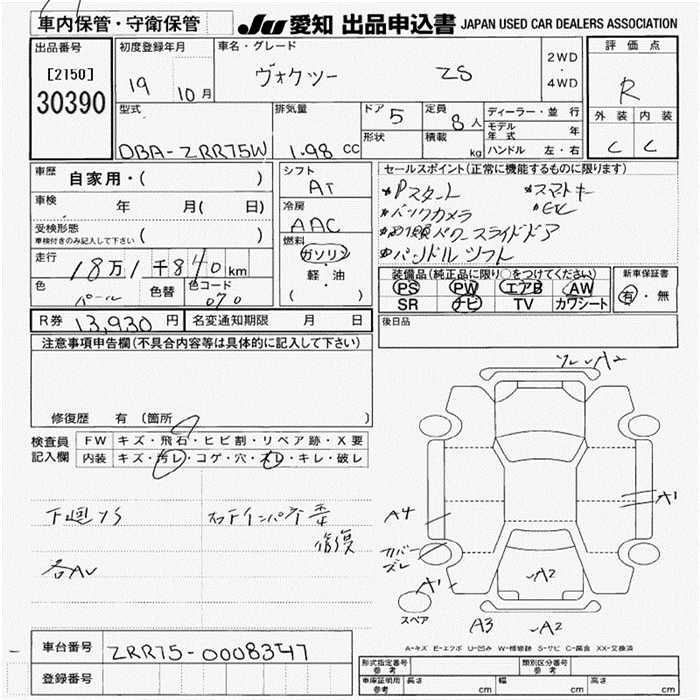 車内保管・守衛保管
JU 愛知 出品申込書 JAPAN USED CAR DEALERS ASSOCIATION
出品番号
[2150]
30390
初度登録年月
19 10月
車名・グレード
ヴォクシー ZS
2WD
・
4WD
評価点
R
外装 内装
C C
型式
DBA-ZRR75W
排気量
1.98 cc
ドア 5
形状
定員 8人
積載 kg
ディーラー・並行
モデル年式 年
ハンドル 左・右
車歴
自家用・( )
車検 年 月( 日)
受検形態
車検付きのみ記入して下さい ( )
走行
18万1千840km
色 パール 色替 色コード 070
シフト
AT
冷房
AAC
燃料
ガソリン
・
軽・油
( )
セールスポイント(正常に機能するものに限ります)
*Pスタート *スマートキー
*バックカメラ *ETC
*両側パワースライドドア
*ハンドルソフト
装備品(純正品に限り○をつけてください)
PS PW エアB AW
SR ナビ TV カワシート
新車保証書
有・無
R券 13,930円 名変通知期限 月 日
後日品
注意事項申告欄(不具合内容等は具体的に記入して下さい)
修復歴 有 (箇所 )
検査員
記入欄
FW キズ・飛石・ヒビ割・リペア跡・X要
内装 キズ・汚レ・コゲ・穴・スレ・キレ・破レ
下廻りS
ステアインパネ
修復
各AU
A2
A1
A4
カバー
ズレ
A1
A2
スペア
A3 A2
A-キズ E-エクボ U-凹み W-補修跡 S-サビ C-腐食 XX-交換済
車台番号 ZRR75-0008347
登録番号
形式指定番号
参考
類別区分番号
参考
車庫証明用
参考
長さ cm 幅 cm 高さ cm